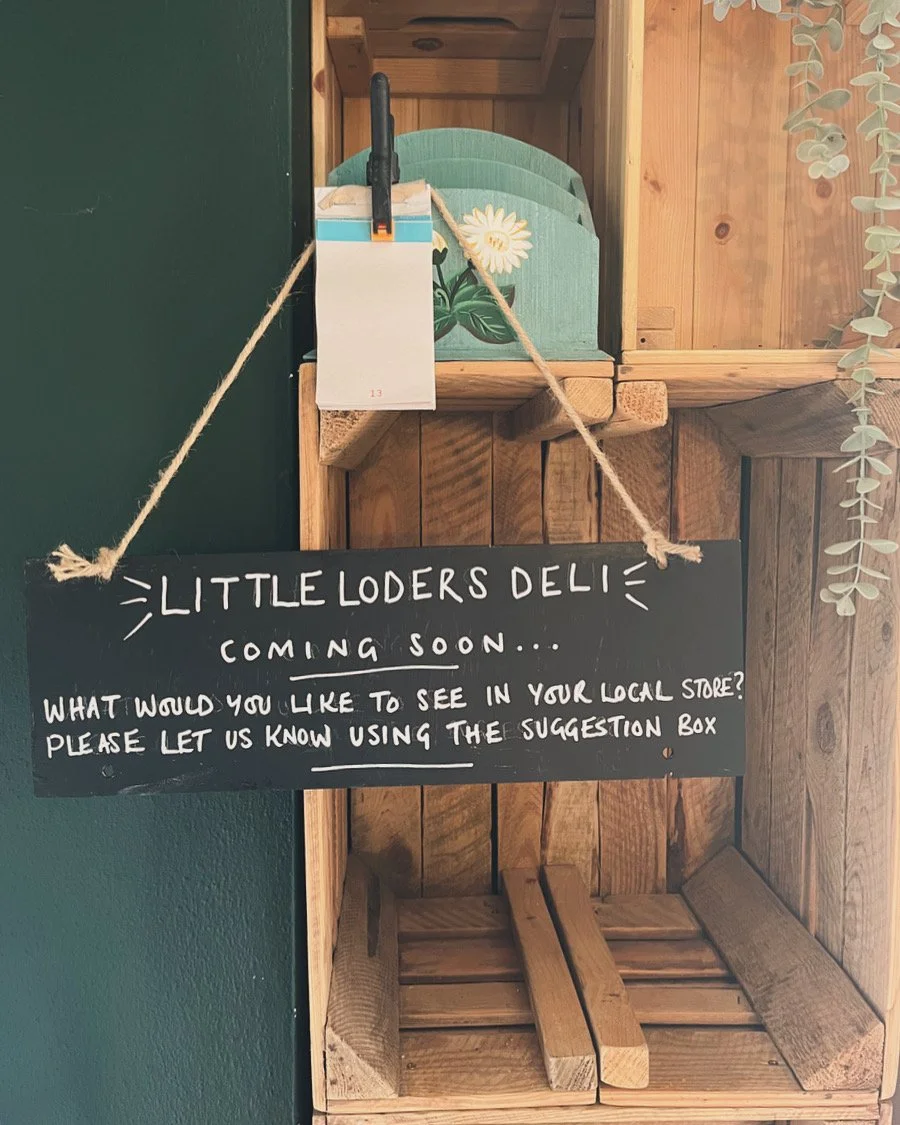 13
LITTLE LODERS DELI
COMING SOON...
WHAT WOULD YOU LIKE TO SEE IN YOUR LOCAL STORE?
PLEASE LET US KNOW USING THE SUGGESTION BOX